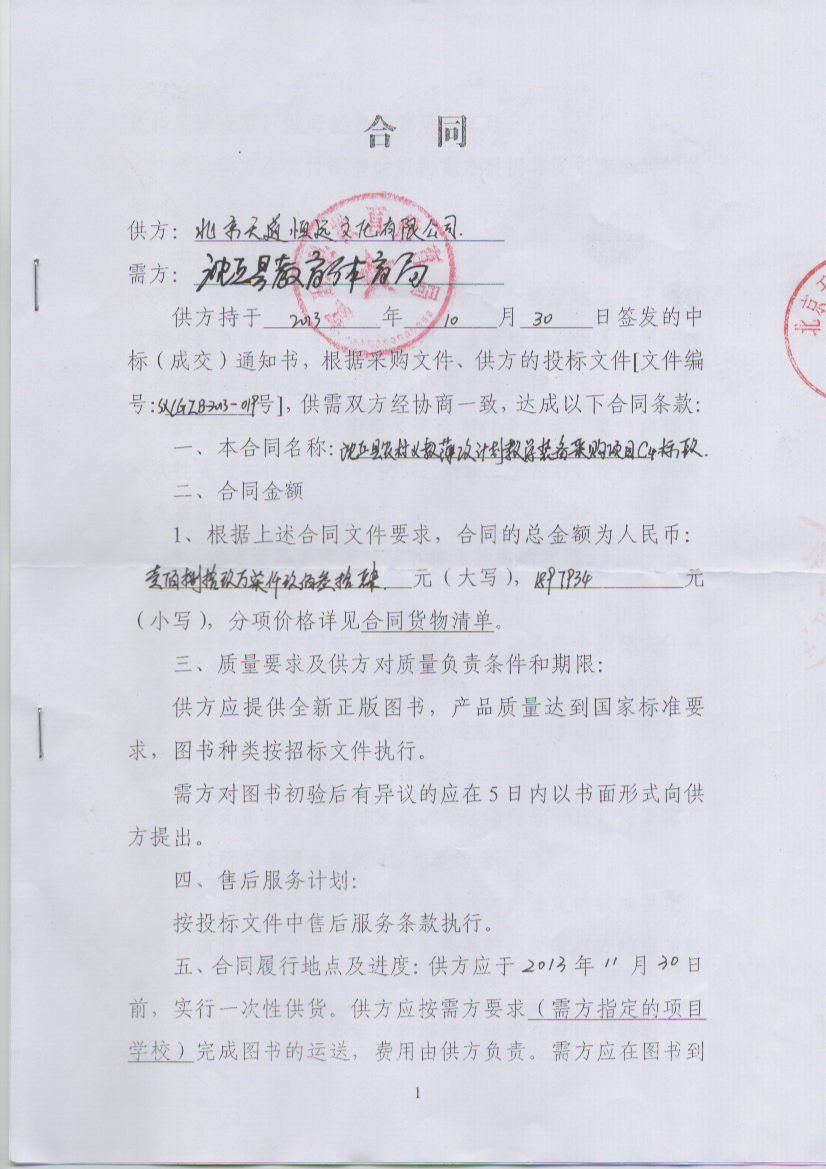 合 同
供方：北京天道恒远文化有限公司.
需方：沁县教育体育局
供方持于 2013 年 10 月 30 日签发的中
标（成交）通知书，根据采购文件、供方的投标文件[文件编
号: 2013-019号]，供需双方经协商一致，达成以下合同条款：
一、本合同名称：县农村义教薄改计划教学装备采购项目C4标段.
二、合同金额
1、根据上述合同文件要求，合同的总金额为人民币：
壹佰捌拾玖万柒仟玖佰叁拾肆 元（大写），1897934 元
（小写），分项价格详见合同货物清单。
三、质量要求及供方对质量负责条件和期限：
供方应提供全新正版图书，产品质量达到国家标准要
求，图书种类按招标文件执行。
需方对图书初验后有异议的应在 5 日内以书面形式向供
方提出。
四、售后服务计划：
按投标文件中售后服务条款执行。
五、合同履行地点及进度：供方应于 2013 年 11 月 30 日
前，实行一次性供货。供方应按需方要求（需方指定的项目
学校）完成图书的运送，费用由供方负责。需方应在图书到
1
北京